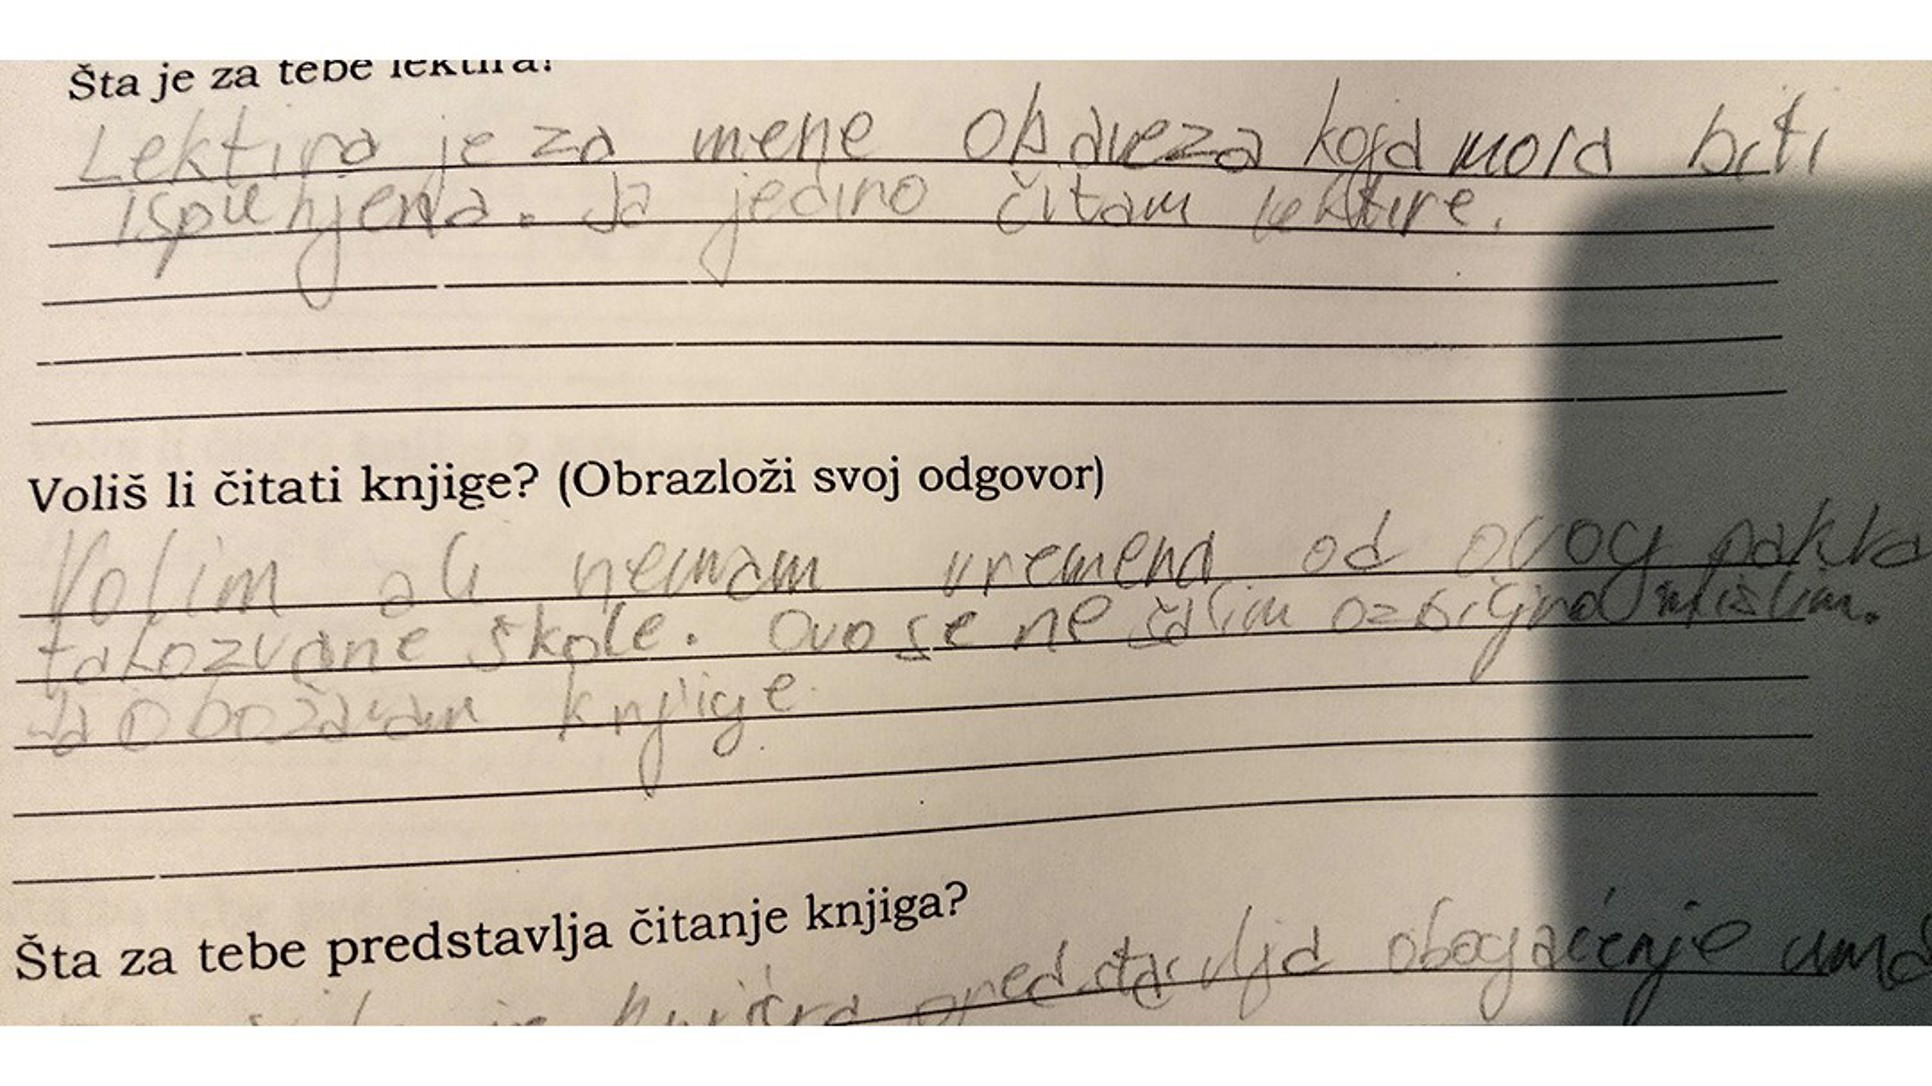 Šta je za tebe lektira?
Lektira je za mene obaveza koja mora biti
ispunjena. Ja jedino čitam lektire.
Voliš li čitati knjige? (Obrazloži svoj odgovor)
Volim ali nemam vremena od ovog pakla
takozvane škole. Ovo se ne šalim ozbiljno mislim.
Ja obožavam knjige
Šta za tebe predstavlja čitanje knjiga?
knjiga predstavlja obogaćenje uma